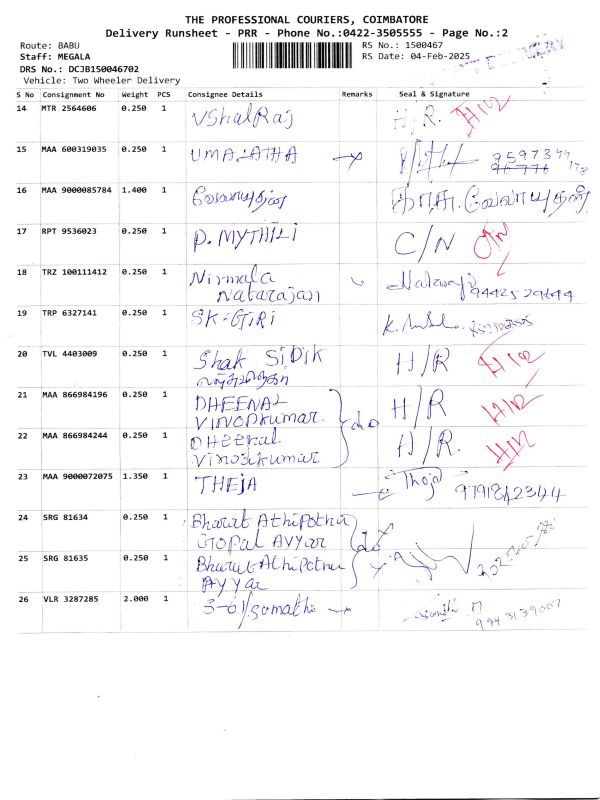 THE PROFESSIONAL COURIERS, COIMBATORE
Delivery Runsheet - PRR - Phone No.:0422-3505555 - Page No.:2
Route: BABU
RS No.: 1500467
Staff: MEGALA
RS Date: 04-Feb-2025
DRS No.: DCJB150046702
Vehicle: Two Wheeler Delivery
S No Consignment No Weight PCS Consignee Details Remarks Seal & Signature
14 MTR 2564606 0.250 1 VShalRaj H/R. H/R
15 MAA 600319035 0.250 1 UMALATHA
16 MAA 9000085784 1.400 1
17 RPT 9536023 0.250 1 P. MYTHILI C/N C/N
18 TRZ 100111412 0.250 1 Nirmala
Natarajan
19 TRP 6327141 0.250 1 SK-GIRI
20 TVL 4403009 0.250 1 Shak SIDIK H/R H/R
21 MAA 866984196 0.250 1 DHEENAL H/R H/R
VINODKUMAR
22 MAA 866984244 0.250 1 DHEENAL H/R. H/R
Vinodkumar
23 MAA 9000072075 1.350 1 THEJA Theja
24 SRG 81634 0.250 1 Bharat Athipotna
GOPAL AYYAR
25 SRG 81635 0.250 1 Bharat Athipotna
AYYAR
26 VLR 3287285 2.000 1 S-01/Sumathi 9943139007